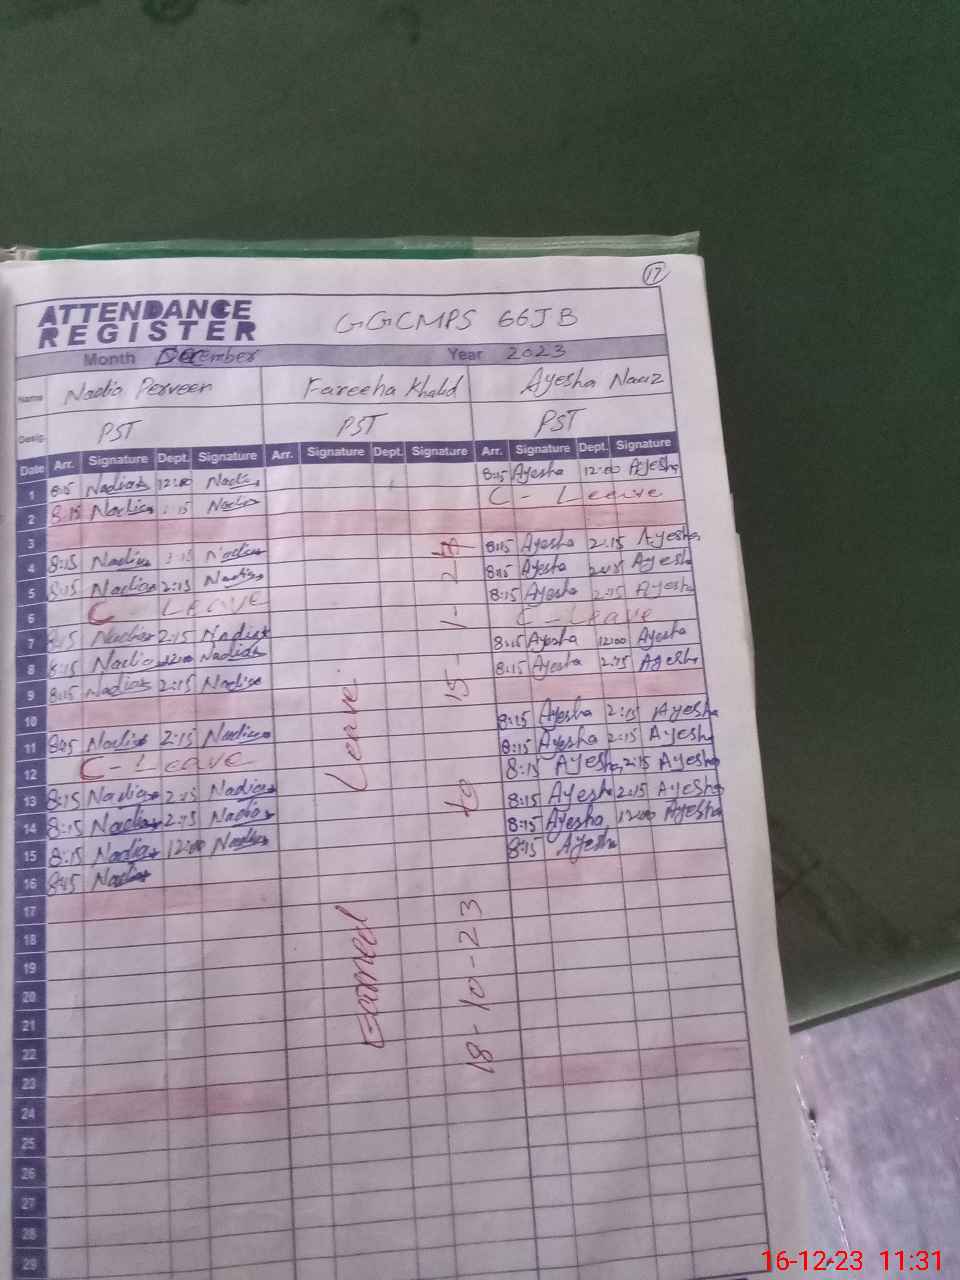 17
ATTENDANCE
REGISTER
GGCMPS 66JB
Month December Year 2023
Name Nadia Perveen Fareeha Khalid Ayesha Naaz
Desig. PST PST PST
Date Arr. Signature Dept. Signature Arr. Signature Dept. Signature Arr. Signature Dept. Signature
1 8:15 Nadia 12:00 Nadia 8:15 Ayesha 12:00 Ayesha
2 8:15 Nadia 2:15 Nadia C - Leave
3
4 8:15 Nadia 2:15 Nadia 8:15 Ayesha 2:15 Ayesha
5 8:15 Nadia 2:15 Nadia 8:15 Ayesha 2:15 Ayesha
6 C - LEAVE 8:15 Ayesha 2:15 Ayesha
7 8:15 Nadia 2:15 Nadia C - Leave
8 8:15 Nadia 12:00 Nadia 8:15 Ayesha 12:00 Ayesha
9 8:15 Nadia 2:15 Nadia 8:15 Ayesha 2:15 Ayesha
10
11 8:15 Nadia 2:15 Nadia 8:15 Ayesha 2:15 Ayesha
12 C - Leave 8:15 Ayesha 2:15 Ayesha
13 8:15 Nadia 2:15 Nadia 8:15 Ayesha 2:15 Ayesha
14 8:15 Nadia 2:15 Nadia 8:15 Ayesha 2:15 Ayesha
15 8:15 Nadia 12:00 Nadia 8:15 Ayesha 12:00 Ayesha
16 8:15 Nadia 8:15 Ayesha
17
18
19
20
21
22
23
24
25
26
27
28
29
Earned Leave
18-10-23 to 15-1-24
16-12-23 11:31